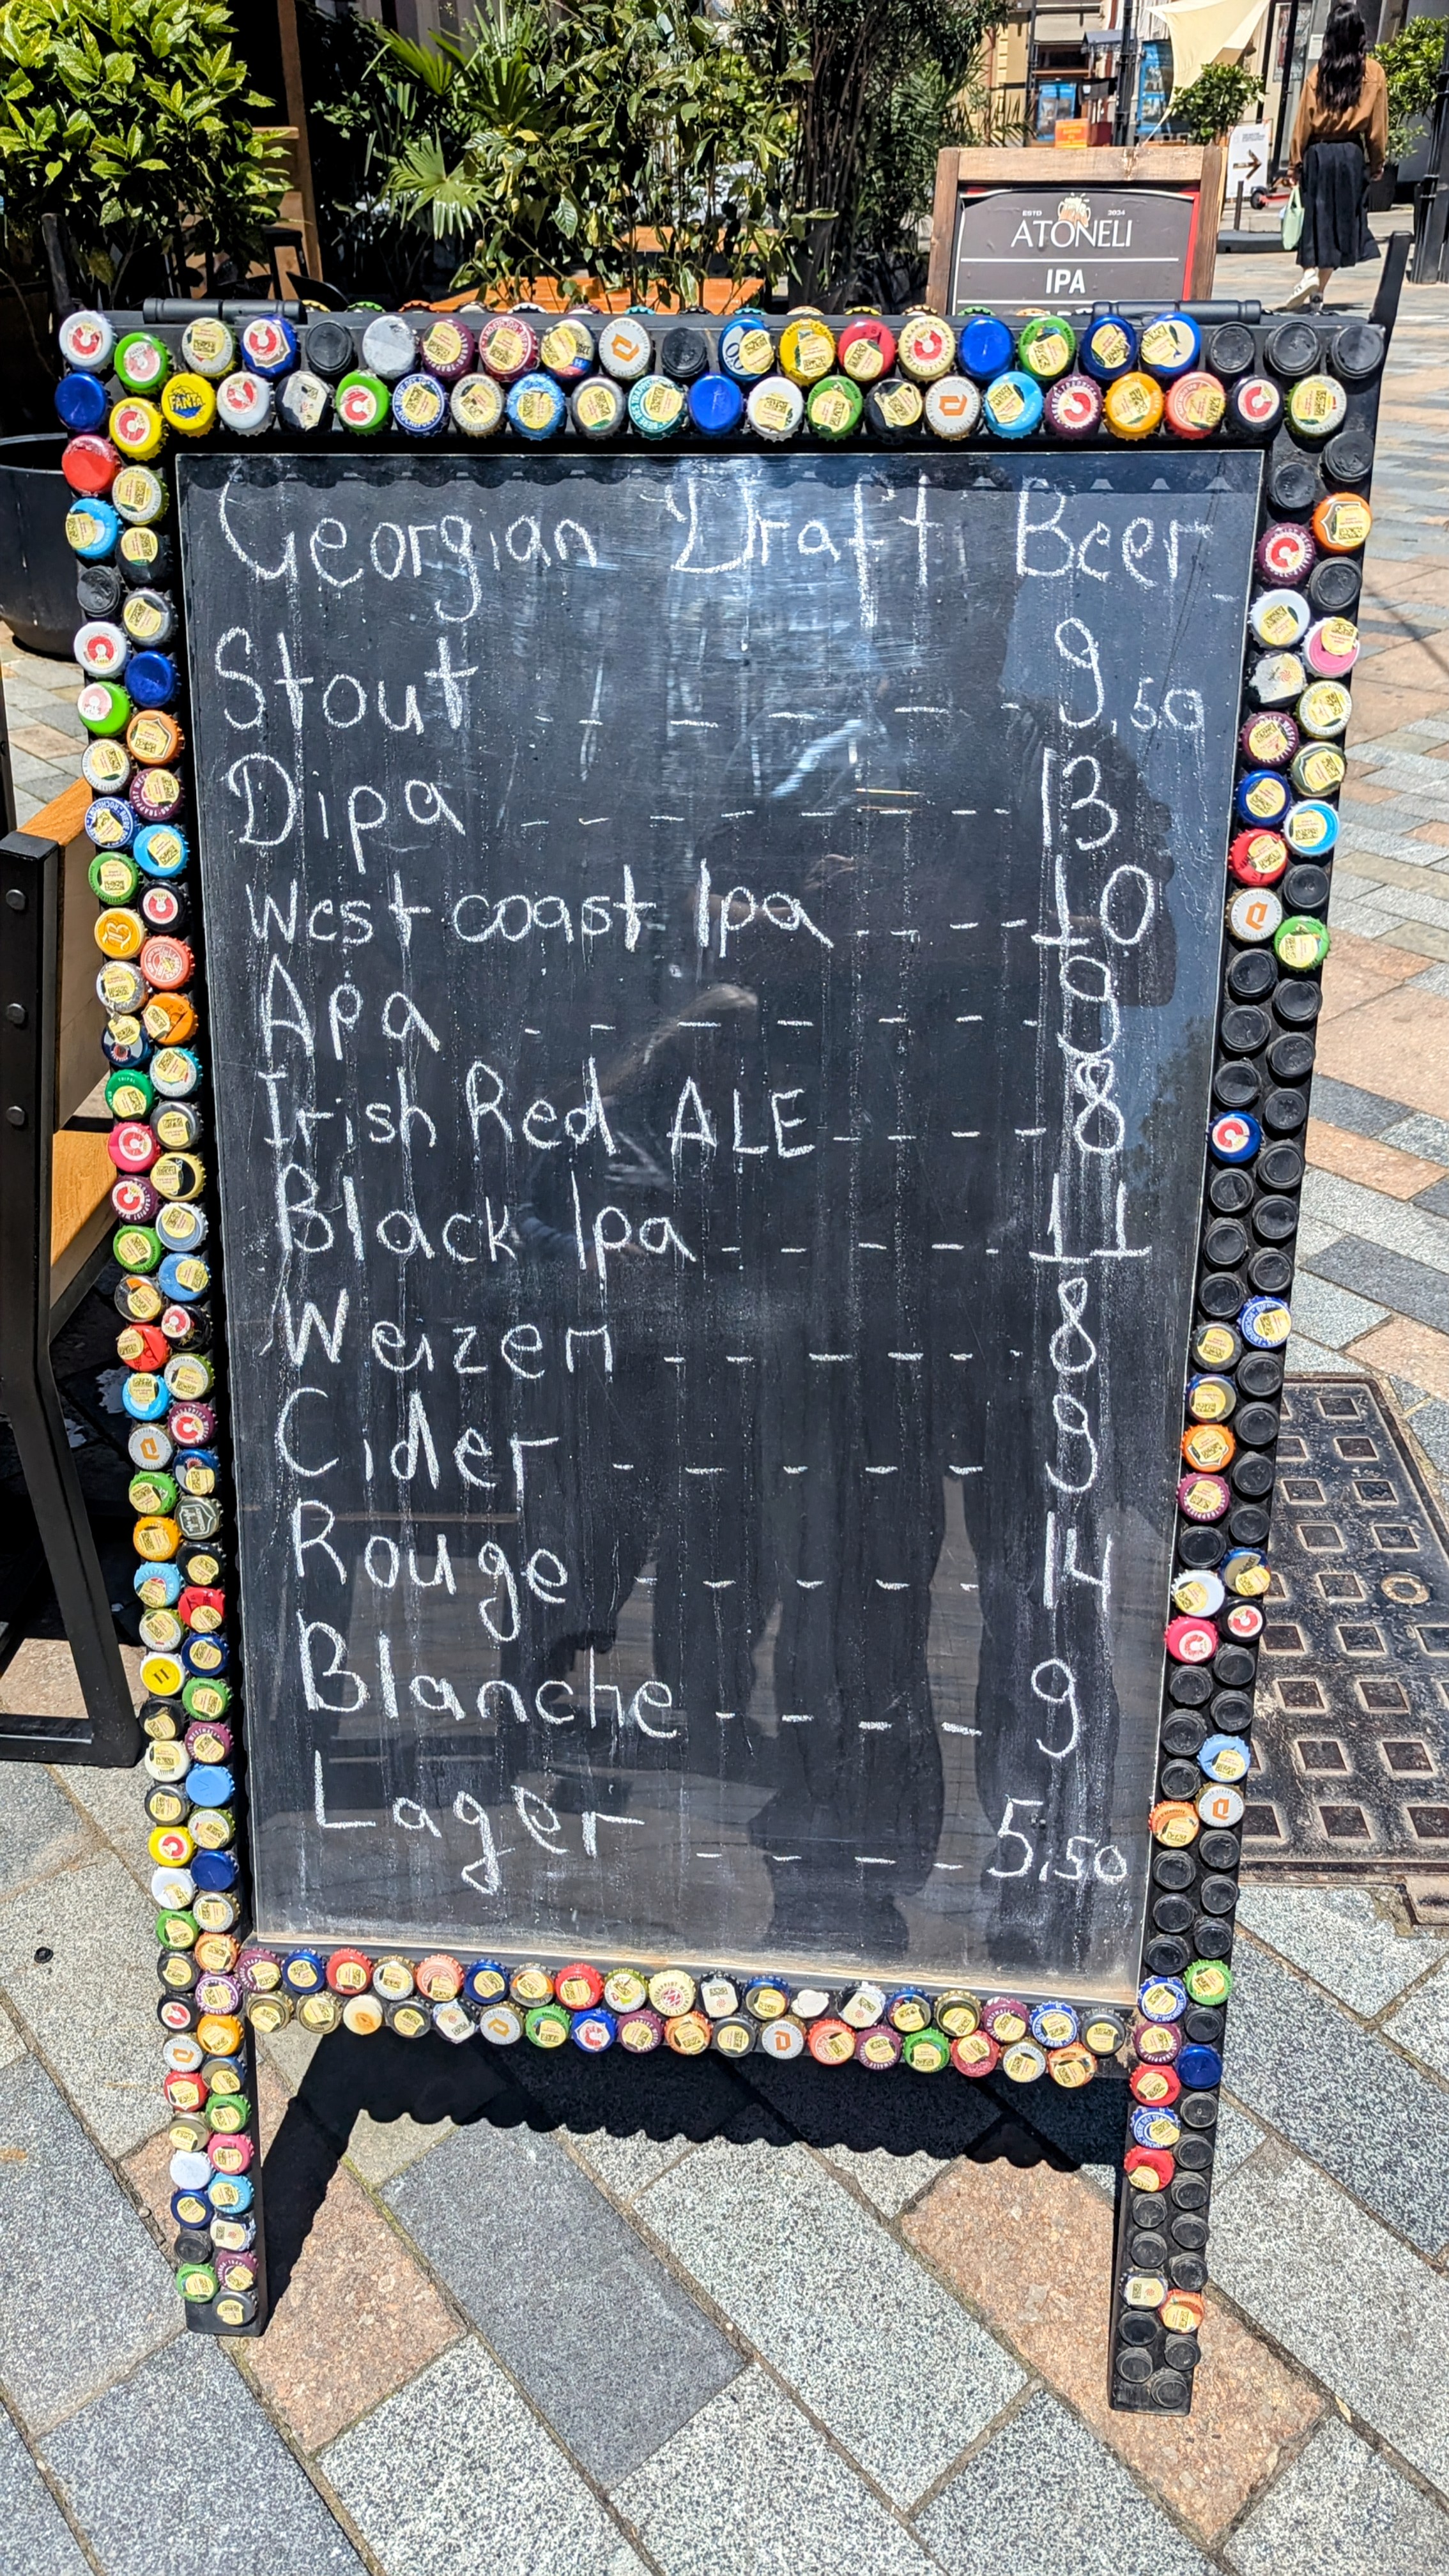 ESTD 2024
ATONELI
IPA
Georgian Draft Beer
Stout - - - - - - 9,50
Dipa - - - - - - - 13
West coast Ipa - - - - 10
Apa - - - - - - - 9
Irish Red ALE - - - - 8
Black Ipa - - - - - - 11
Weizen - - - - - - 8
Cider - - - - - 9
Rouge - - - - - 14
Blanche - - - - 9
Lager - - - - 5,50
FANTA